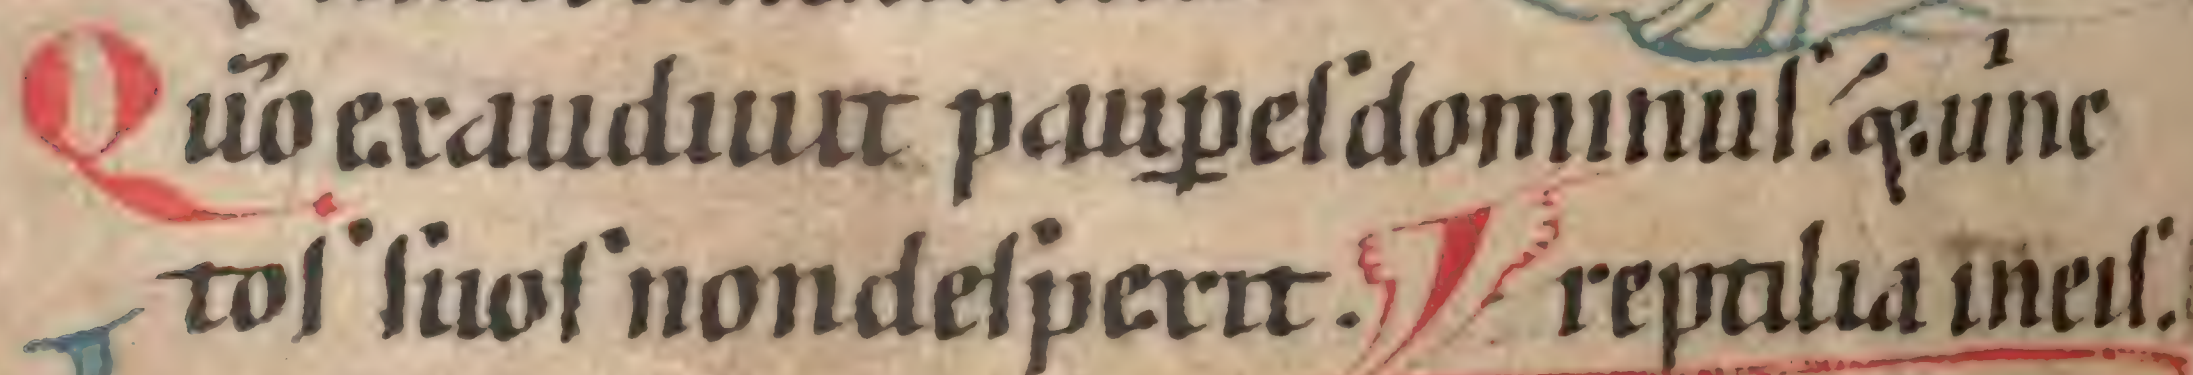 Qūo exaudiuit pauꝑeſ dominuſ. & uinc
toſ ſuoſ non deſpexit. reptilia in eiſ.